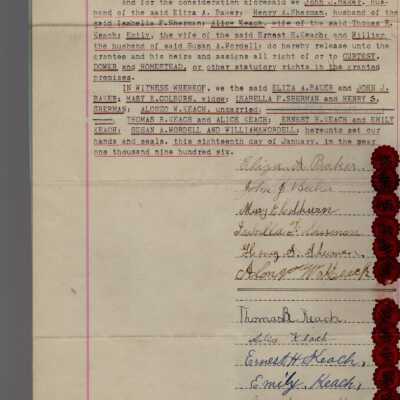 And for the consideration aforesaid we John J.Baker, hus-
band of the said Eliza A. Baker; Henry S.Sherman, husband of the
said Isabella F.Sherman; Alice Keach, wife of the said Thomas R.
Keach; Emily, the wife of the said Ernest H.Keach; and William
the husband of said Susan A.Wordell; do hereby release unto the
grantee and his heirs and assigns all right of or to CURTESY,
DOWER and HOMESTEAD, or other statutory rights in the granted
premises.
IN WITNESS WHEREOF, we the said ELIZA A.BAKER and JOHN J.
BAKER; MARY E.COLBURN, widow; ISABELLA F.SHERMAN and HENRY S.
SHERMAN; ALONZO W.KEACH, unmarried
THOMAS R.KEACH and ALICE KEACH; ERNEST H.KEACH and EMILY
KEACH; SUSAN A.WORDELL AND WILLIAM WORDELL, hereunto set our
hands and seals, this eighteenth day of January, in the year
one thousand nine hundred six.
Eliza A Baker
John J Baker
Mary E Colburn
Isabella F. Sherman
Henry S. Sherman
Alonzo W. Keach
Thomas R Keach.
Alice Keach
Ernest H. Keach,
Emily Keach,